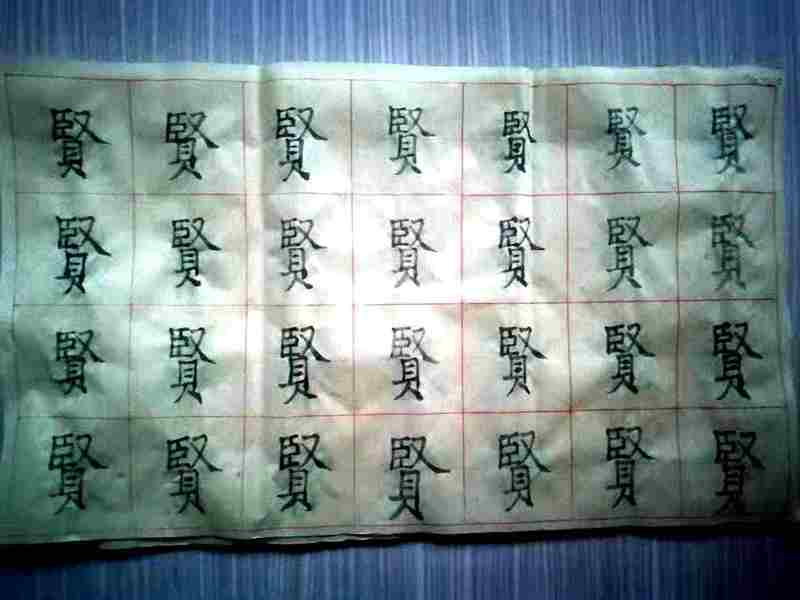 賢賢賢賢賢賢賢
賢賢賢賢賢賢賢
賢賢賢賢賢賢賢
賢賢賢賢賢賢賢